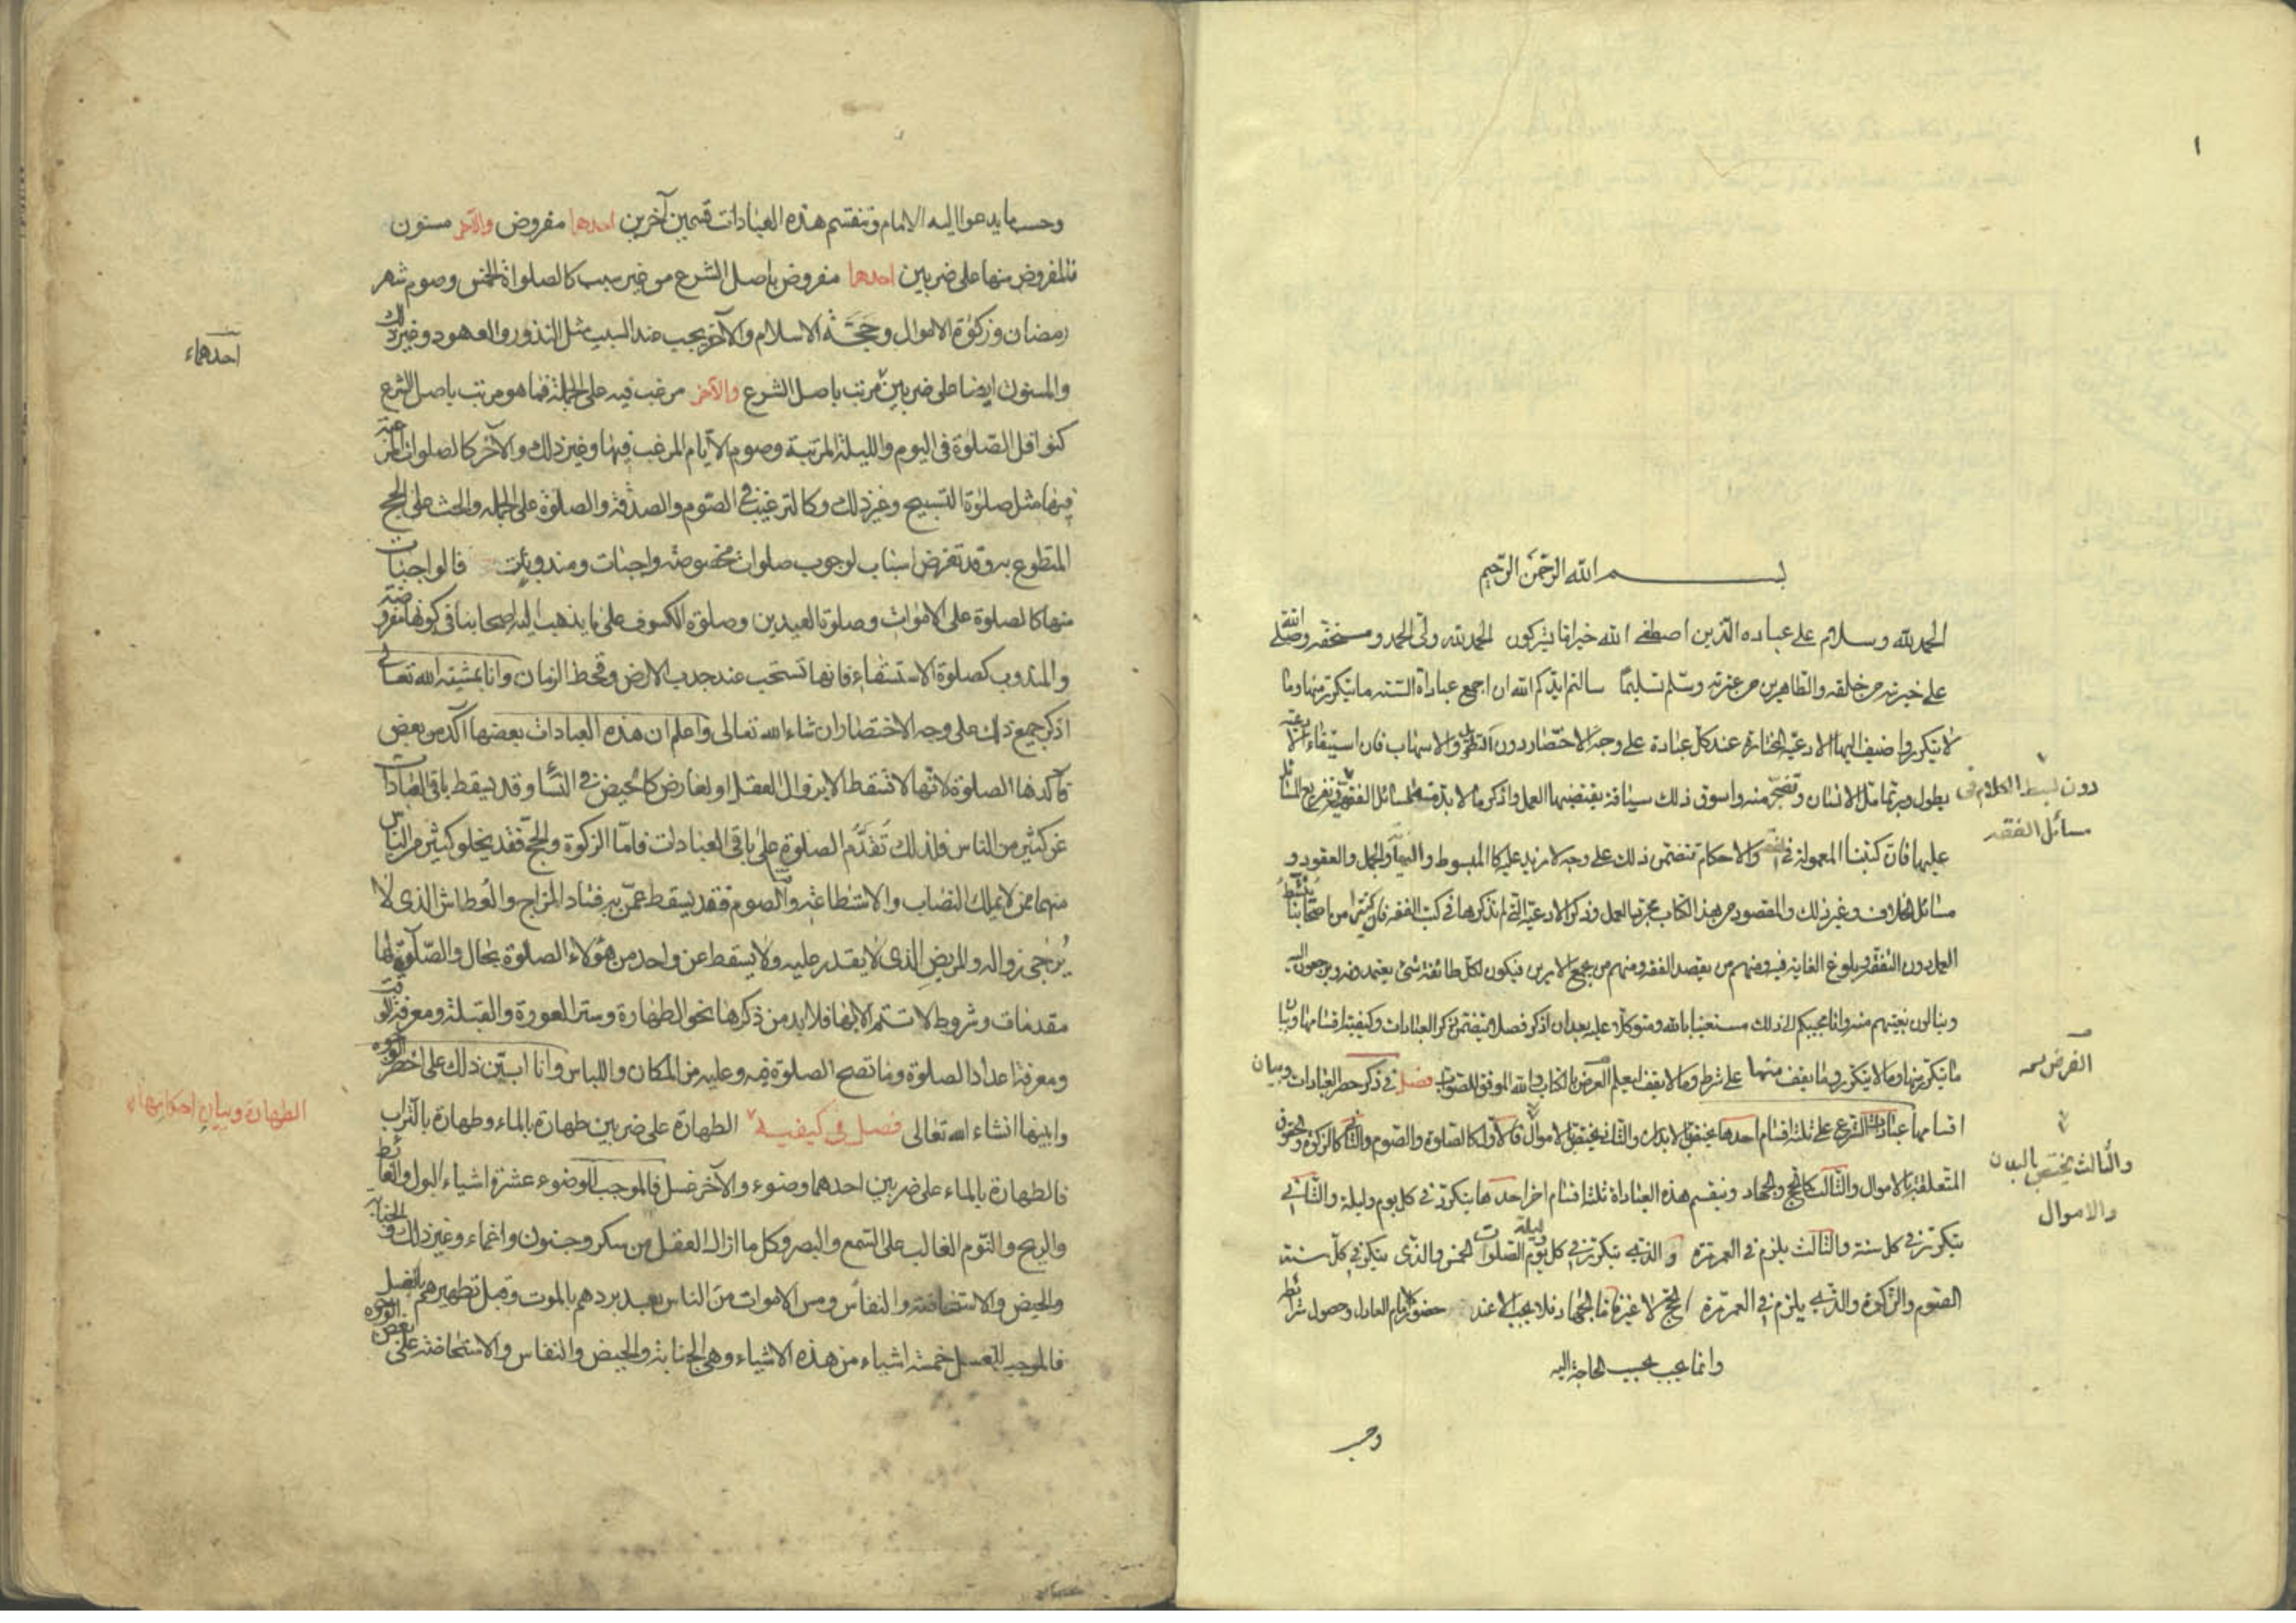 ١
بسم الله الرحمن الرحيم
الحمد لله وسلام على عباده الذين اصطفى الله خير اما يشركون الحمد لله ولى الحمد ومستحقه وصلى الله
على خيرته من خلقه والطاهرين من عترته وسلم تسليمًا سالتم ايدكم الله ان اجمع عباداة السنة ما يتكرر منها وما
لا يتكرر واضيف اليها الادعية المختارة عند كل عبادة على وجه الاختصار دون التطويل والاسهاب فان استيفاء الادعية
يطول وربما مل الانسان وتضجر منه واسوق ذلك سياقة يقتضيها العمل واذكر ما لا بد منه مسائل الفقه وتفريع المسائل
دون بسط الكلام فى
مسائل الفقه
عليها فان كتبنا المعمولة فى الفقه والاحكام تتضمن ذلك على وجه لا مزيد عليه كالمبسوط والنهاية والجمل والعقود و
مسائل الخلاف وغير ذلك والمقصود من هذا الكتاب مجرد العمل وذكر الادعية التى لم نذكرها فى كتب الفقه فان كثيرا من اصحابنا ينشط
العمل دون التفقه وبلوغ الغاية فيه ومنهم من يقصد الفقه ومنهم من يجمع الامرين فيكون لكل طائفة شئ يعتمدونه ويرجعون اليه
وينالون بغيتهم منه وانا مجيبكم الى ذلك مستعينا بالله ومتوكلا عليه بعد ان اذكر فصلا يتضمن ذكر العبادات وكيفية اقسامها وبيان
ما يتكرر منها وما لا يتكرر وما يقف منها على شرط وما لا يقف ليعلم الغرض بالكتاب والله الموفق للصواب فصل فى ذكر حصر العبادات وبيان
الغرض
اقسامها عبادات الشرع على ثلثة اقسام احدها يختص الابدان والثانى يختص الاموال فالاول كالصلوة والصوم والثانى كالزكوة والحقوق
والثالث يختص بالبدن
والاموال
المتعلقة بالاموال والثالث كالحج والجهاد وينقسم هذه العباداة ثلثة اقسام اخر احدها يتكرر فى كل يوم وليلة والثانى
يتكرر فى كل سنة والثالث يلزم فى العمر مرة والذى يتكرر فى كل يوم وليلة الصلوات الخمس والذى يتكرر فى كل سنة
الصوم والزكوة والذى يلزم فى العمر مرة الحج لا غير فاما الجهاد فلا يجب الا عند حضور الامام العادل وحصول شرائط
وانما يجب بحسب الحاجة اليه
وحسب
وحسب ما يدعوا اليه الامام وتنقسم هذه العبادات قسمين آخرين احدهما مفروض والآخر مسنون
فالمفروض منها على ضربين احدهما مفروض باصل الشرع من غير سبب كالصلواة الخمس وصوم شهر
رمضان وزكوة الاموال وحجة الاسلام والآخر يجب عند السبب مثل النذور والعهود وغير ذلك
احدهماء
والمسنون ايضا على ضربين مرتب باصل الشرع والآخر مرغب فيه على الجملة فما هو مرتب باصل الشرع
كنوافل الصلوة فى اليوم والليلة المرتبة وصوم الايام المرغب فيها وغير ذلك والآخر كالصلوات المرغبة
فيها مثل صلوة التسبيح وغير ذلك وكالترغيب فى الصوم والصدقة والصلوة على الجملة والحث على الحج
المتطوع به وقد تعرض اسباب لوجوب صلوات مخصوصة واجبات ومندوبات فالواجبات
منها كالصلوة على الاموات وصلوة العيدين وصلوة الكسوف على ما يذهب اليه اصحابنا فى كونها مفروضة
والمندوب كصلوة الاستسقاء فانها تستحب عند جدب الارض وقحط الزمان وانا بمشيئة الله تعالى
اذكر جميع ذلك على وجه الاختصار ان شاء الله تعالى واعلم ان هذه العبادات بعضها آكد من بعض
فآكدها الصلوة لانها لا تسقط الا بزوال العقل او لعارض كالحيض فى النساء وقد يسقط باقى العبادات
عن كثير من الناس فلذلك تقدم الصلوة على باقى العبادات فاما الزكوة والحج فقد يخلو كثير من الناس
منهما ممن لا يملك النصاب والاستطاعة والصوم فقد يسقط عمن به فساد المزاج والعطاش الذى لا
يرجى زواله والمريض الذى لا يقدر عليه ولا يسقط عن واحد من هؤلاء الصلوة بحال والصلوة لها
مقدمات وشروط لا تتم الا بها فلا بد من ذكرها نحو الطهارة وستر العورة والقبلة ومعرفة الوقت
ومعرفة اعداد الصلوة وما تصح الصلوة فيه وعليه من المكان واللباس وانا ابين ذلك على اخصر الوجوه
وابينها انشاء الله تعالى فصل فى كيفية الطهارة على ضربين طهارة بالماء وطهارة بالتراب
الطهارة وبيان احكامها
فالطهارة بالماء على ضربين احدهما وضوء والآخر غسل فالموجب للوضوء عشرة اشياء البول والغائط
والريح والنوم الغالب على السمع والبصر وكل ما ازال العقل من سكر وجنون واغماء وغير ذلك والجنابة
والحيض والاستحاضة والنفاس ومس الاموات من الناس بعد بردهم بالموت وقبل تطهيرهم بالغسل
فالموجب للغسل خمسة اشياء من هذه الاشياء وهى الجنابة والحيض والنفاس والاستحاضة على بعض الوجوه